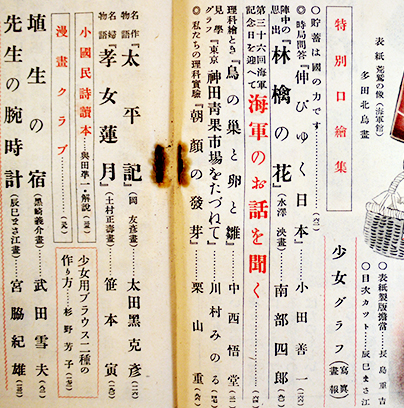 表紙 荒鷲の妹(海軍館) 多田北烏畫
○表紙製版擔當……長島重吉
○目次カット……辰巳まさ江
特別口繪集
少女グラフ(寫眞畫報)
○貯蓄は國の力です
◎時局問答『伸びゆく日本』 小田善一
陣中の思出『林檎の花』(水澤泱畫) 南部四郎
第三十六回海軍記念日を迎へて 海軍のお話を聞く
理科繪とき『鳥の巣と卵と雛』 中西悟堂
見學グラフ『東京神田青果市場をたづねて』 川村みのる
◎私たちの理科實驗『朝顔の發芽』 栗山重
名作物語『太平記』(岡友彦畫) 太田黑克彦
名婦物語『孝女蓮月』(土村正壽畫) 笹本寅
小國民詩讀本……與田準一・解說
漫畫クラブ
少女用ブラウス二種の作り方……杉野芳子
埴生の宿(黒崎義介畫) 武田雪夫
先生の腕時計(辰巳まさ江畫) 宮脇紀雄